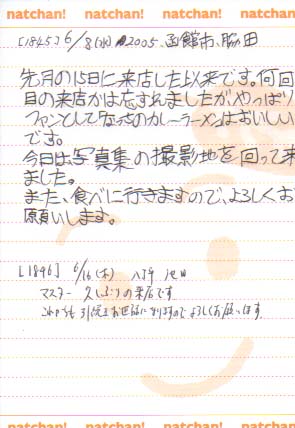 natchan! natchan! natchan! natchan!
[1845] 6/8(水) 2005. 函館市、脇田
先月の15日に来店した以来です。何回
目の来店かは忘すれましたが、やっぱり
ファンとしてなっちのカレーラーメンはおいしい
です。
今日は写真集の撮影地を回って来
ました。
また、食べに行きますので、よろしくお
願いします。
[1846] 6/16(木)
マスター 久しぶりの来店です。
これからも引続きお世話になりますのでよろしくお願いします。
natchan! natchan! natchan! natchan!